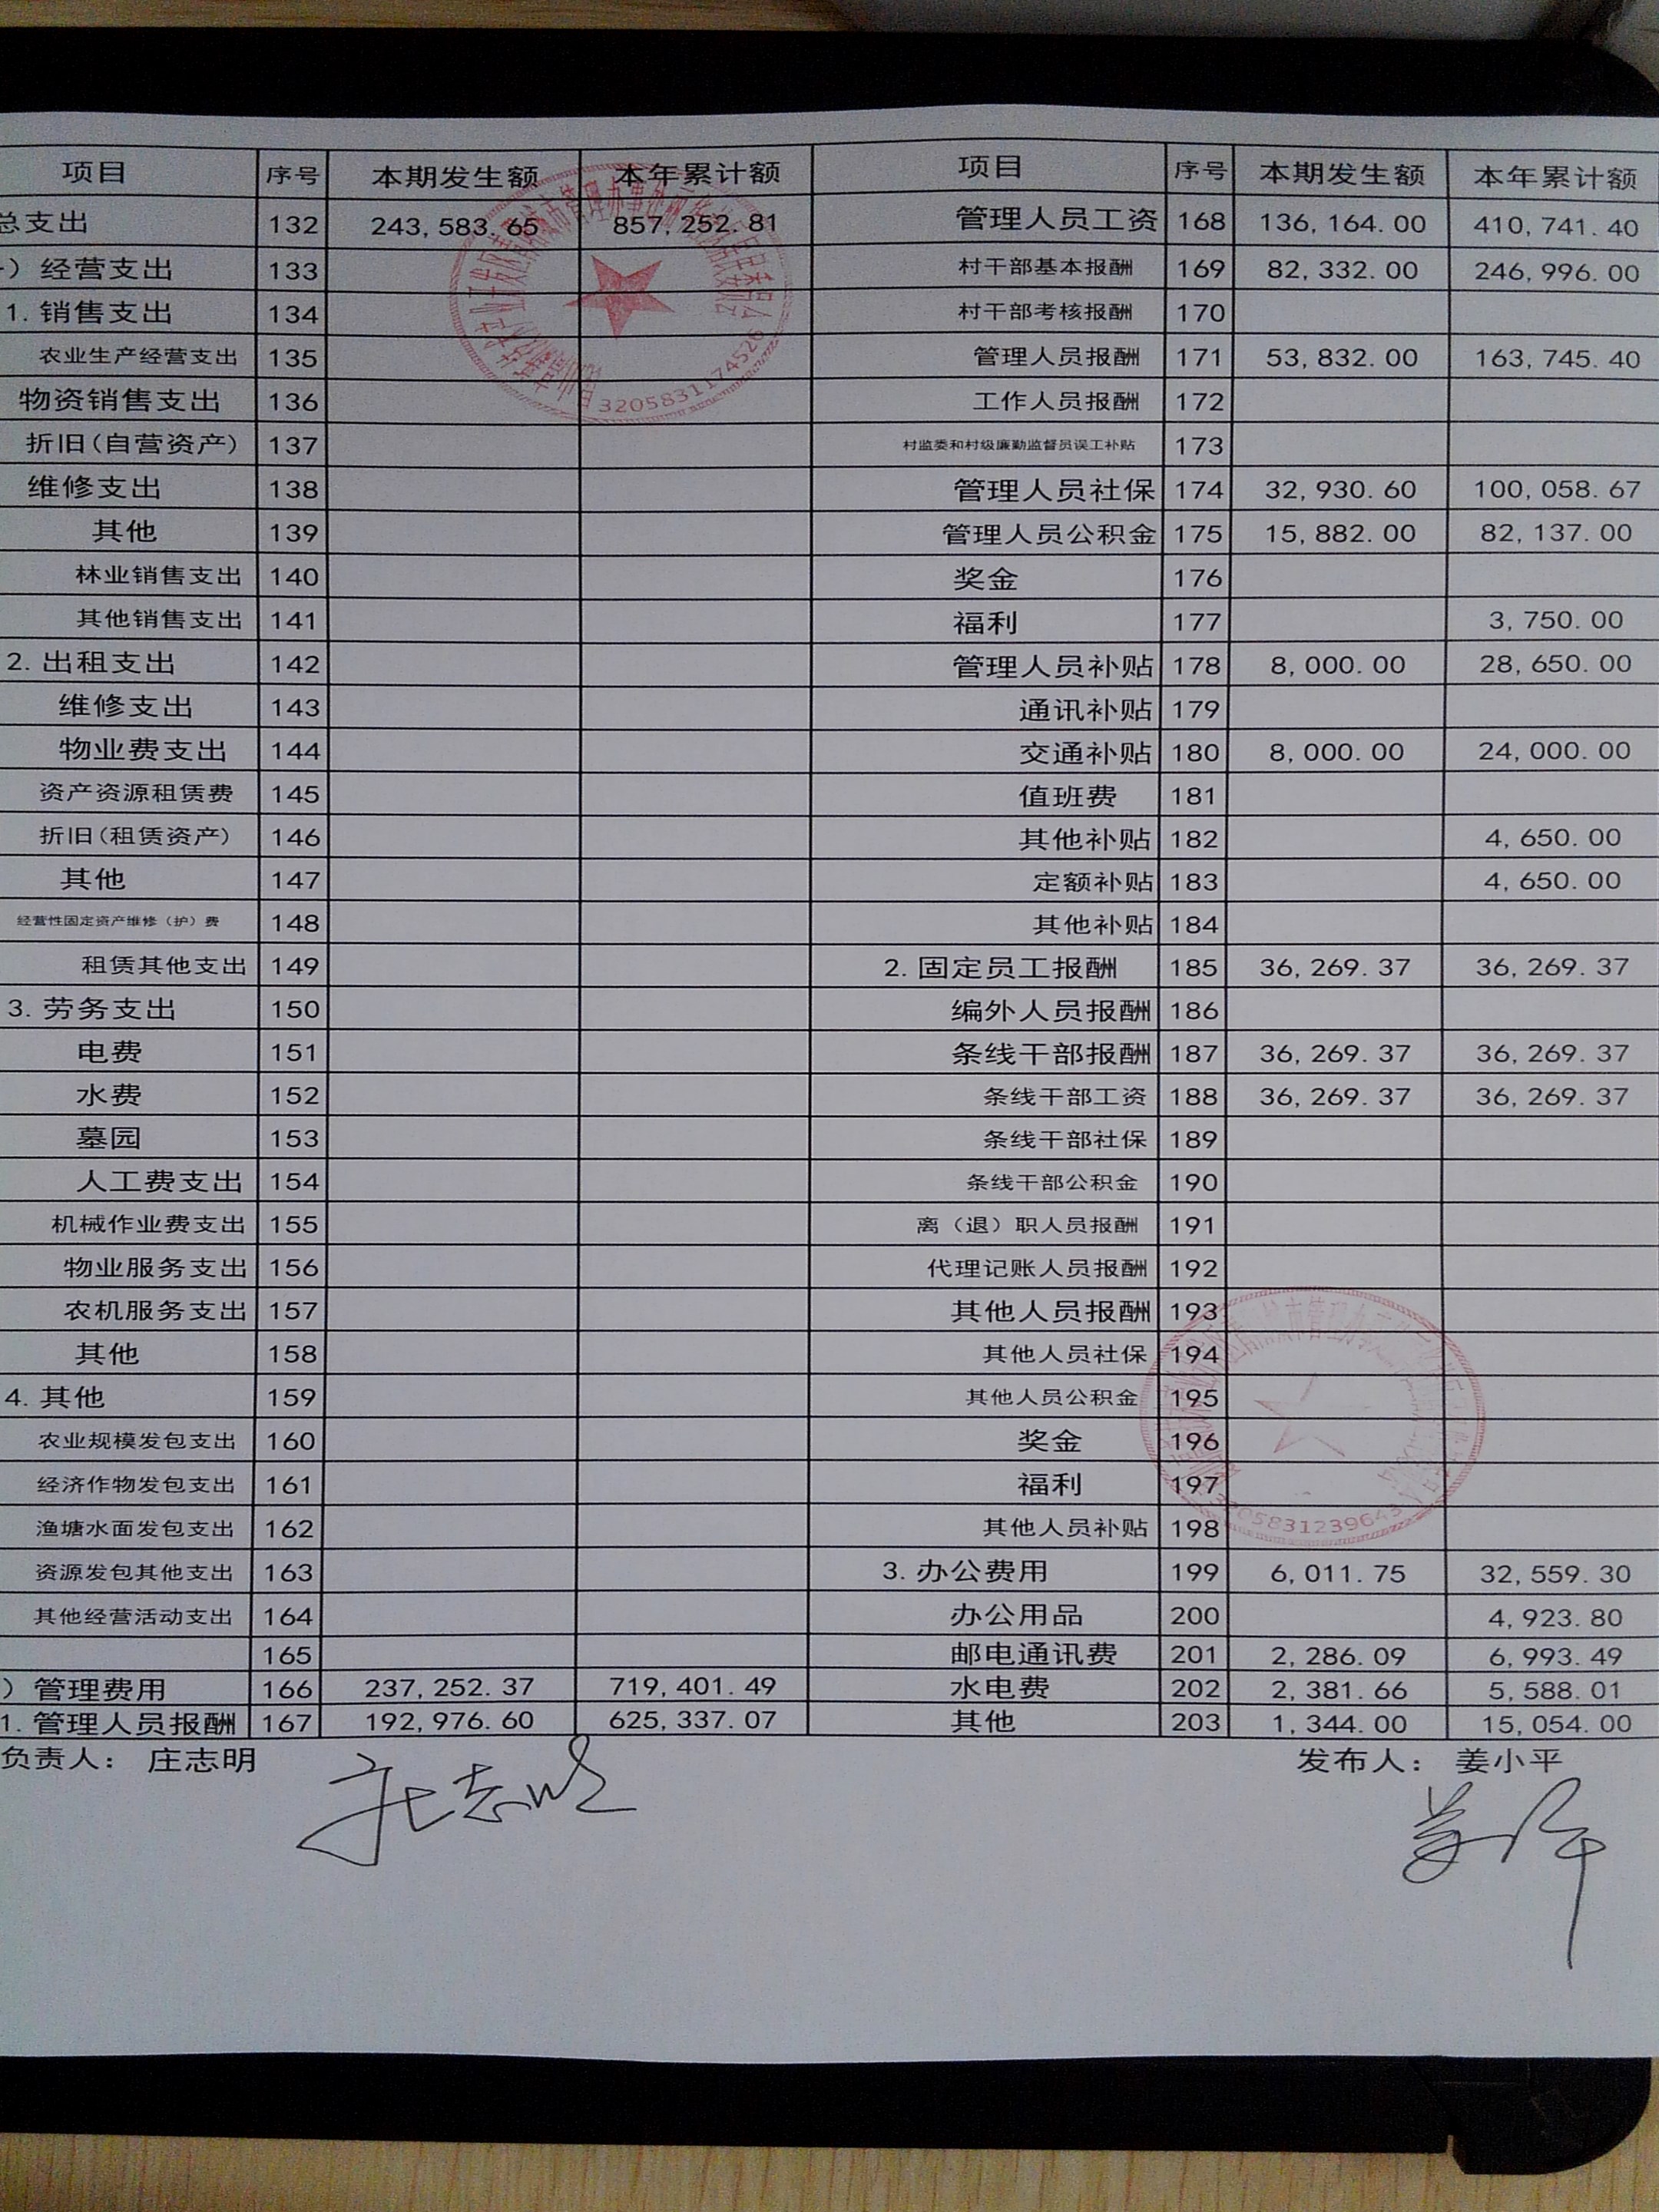 项目 序号 本期发生额 本年累计额 项目 序号 本期发生额 本年累计额
总支出 132 243,583.65 857,252.81 管理人员工资 168 136,164.00 410,741.40
）经营支出 133 村干部基本报酬 169 82,332.00 246,996.00
1. 销售支出 134 村干部考核报酬 170
农业生产经营支出 135 管理人员报酬 171 53,832.00 163,745.40
物资销售支出 136 工作人员报酬 172
折旧(自营资产) 137 村监委和村级廉勤监督员误工补贴 173
维修支出 138 管理人员社保 174 32,930.60 100,058.67
其他 139 管理人员公积金 175 15,882.00 82,137.00
林业销售支出 140 奖金 176
其他销售支出 141 福利 177 3,750.00
2. 出租支出 142 管理人员补贴 178 8,000.00 28,650.00
维修支出 143 通讯补贴 179
物业费支出 144 交通补贴 180 8,000.00 24,000.00
资产资源租赁费 145 值班费 181
折旧(租赁资产) 146 其他补贴 182 4,650.00
其他 147 定额补贴 183 4,650.00
经营性固定资产维修（护）费 148 其他补贴 184
租赁其他支出 149 2. 固定员工报酬 185 36,269.37 36,269.37
3. 劳务支出 150 编外人员报酬 186
电费 151 条线干部报酬 187 36,269.37 36,269.37
水费 152 条线干部工资 188 36,269.37 36,269.37
墓园 153 条线干部社保 189
人工费支出 154 条线干部公积金 190
机械作业费支出 155 离（退）职人员报酬 191
物业服务支出 156 代理记账人员报酬 192
农机服务支出 157 其他人员报酬 193
其他 158 其他人员社保 194
4. 其他 159 其他人员公积金 195
农业规模发包支出 160 奖金 196
经济作物发包支出 161 福利 197
渔塘水面发包支出 162 其他人员补贴 198
资源发包其他支出 163 3. 办公费用 199 6,011.75 32,559.30
其他经营活动支出 164 办公用品 200 4,923.80
165 邮电通讯费 201 2,286.09 6,993.49
）管理费用 166 237,252.37 719,401.49 水电费 202 2,381.66 5,588.01
1. 管理人员报酬 167 192,976.60 625,337.07 其他 203 1,344.00 15,054.00
负责人： 庄志明 发布人： 姜小平
庄志明 姜小平
3205831174526
3205831239643